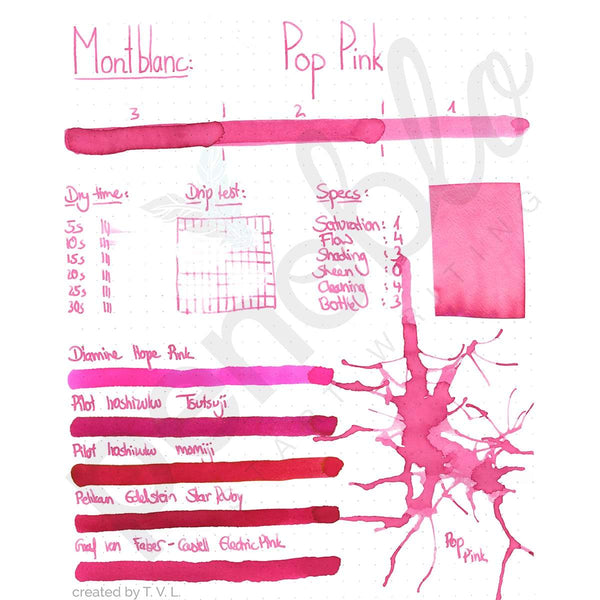 Montblanc: Pop Pink
3 2 1
Dry time: Drip test: Specs:
5s
10s
15s
20s
25s
30s
Saturation: 1
Flow : 4
Shading : 3
Sheen : 0
Cleaning : 4
Bottle : 3
Diamine Hope Pink
Pilot Iroshizuku Tsutsuji
Pilot Iroshizuku momiji
Pelikan Edelstein Star Ruby
Graf von Faber-Castell Electric Pink
Pop
Pink
created by T. V. L.
penoblo
ART WRITING